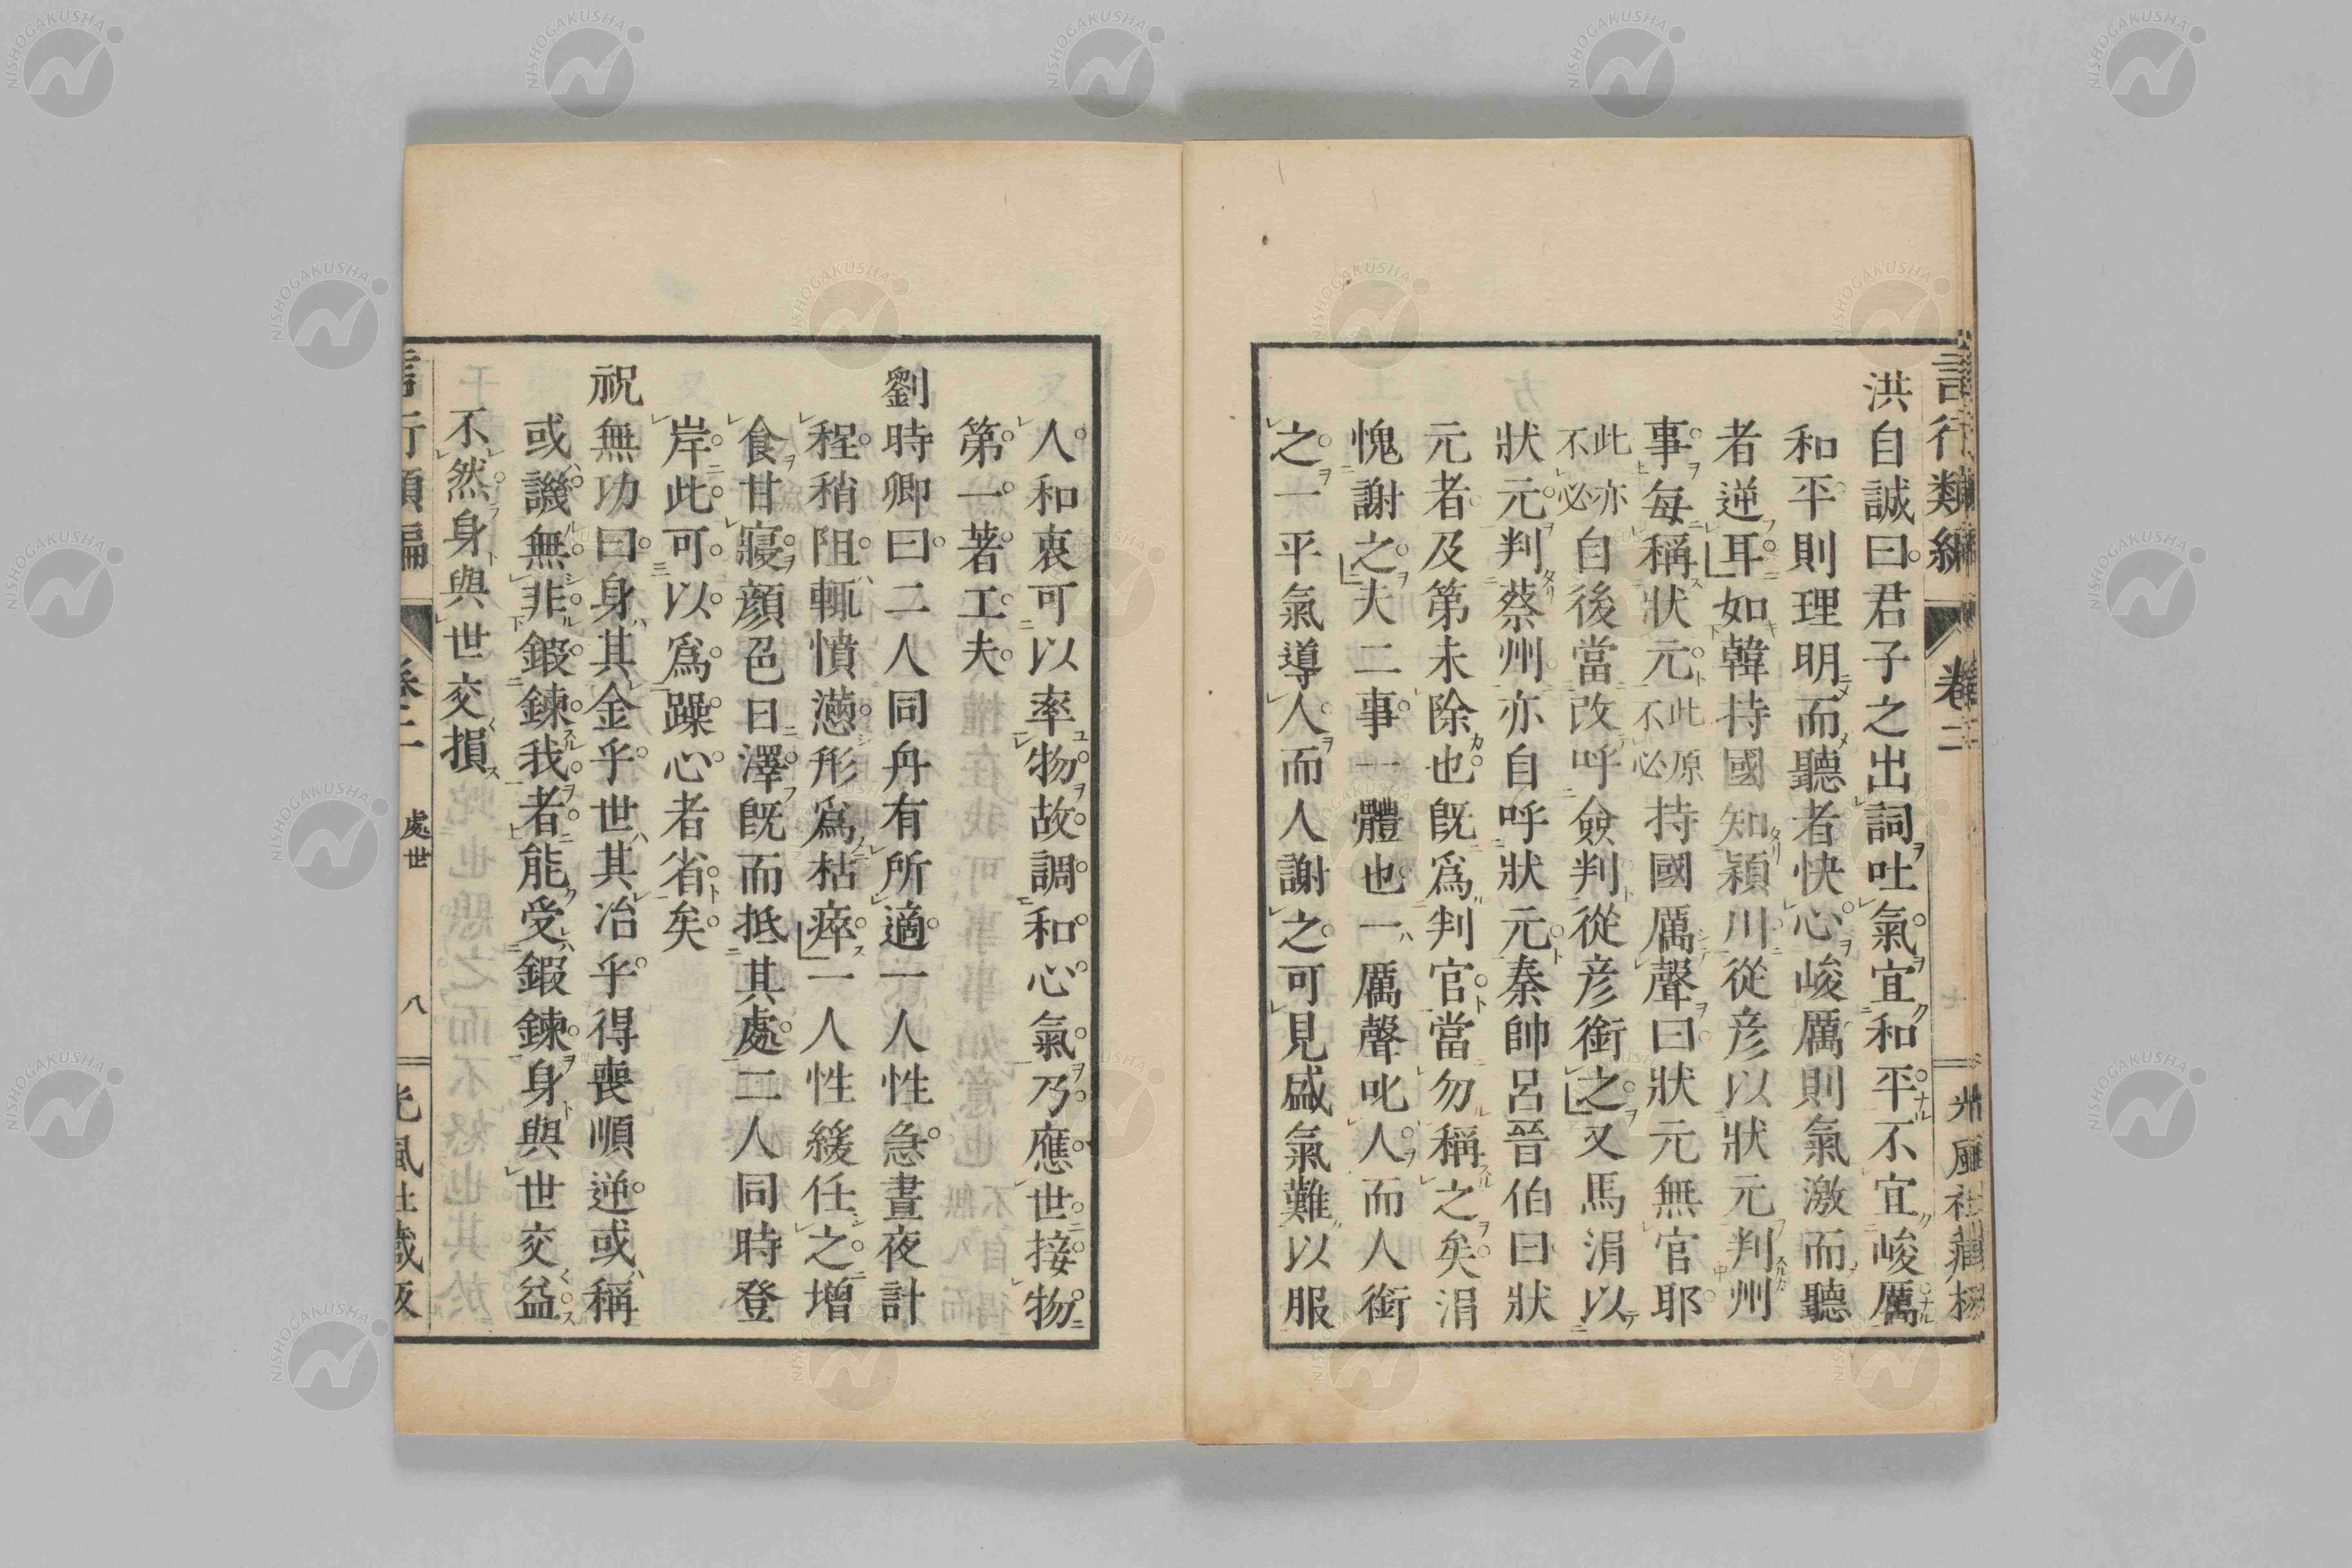 言行類編 卷二 光風社藏板
洪自誠曰君子之出詞吐氣宜和平不宜峻厲
和平則理明而聽者快心峻厲則氣激而聽
者逆耳如韓持國知潁川從彥以狀元判州
事每稱狀元此原不必持國厲聲曰狀元無官耶
此亦不必自後當改呼僉判從彥銜之又馬涓以
狀元判蔡州亦自呼狀元秦帥呂晉伯曰狀
元者及第未除也旣爲判官當勿稱之矣涓
愧謝之夫二事一體也一厲聲叱人而人銜
之一平氣導人而人謝之可見盛氣難以服
人和衷可以率物故調和心氣乃應世接物
第一著工夫
劉時卿曰二人同舟有所適一人性急晝夜計
程稍阻輒憤懣形爲枯瘁一人性緩任之增
食甘寢顏色日澤旣而抵其處二人同時登
岸此可以爲躁心者省矣
祝無功曰身其金乎世其冶乎得喪順逆或稱
或譏無非鍛鍊我者能受鍛鍊身與世交益
不然身與世交損
言行類編 卷二 處世 八 光風社藏板
NISHOGAKUSHA